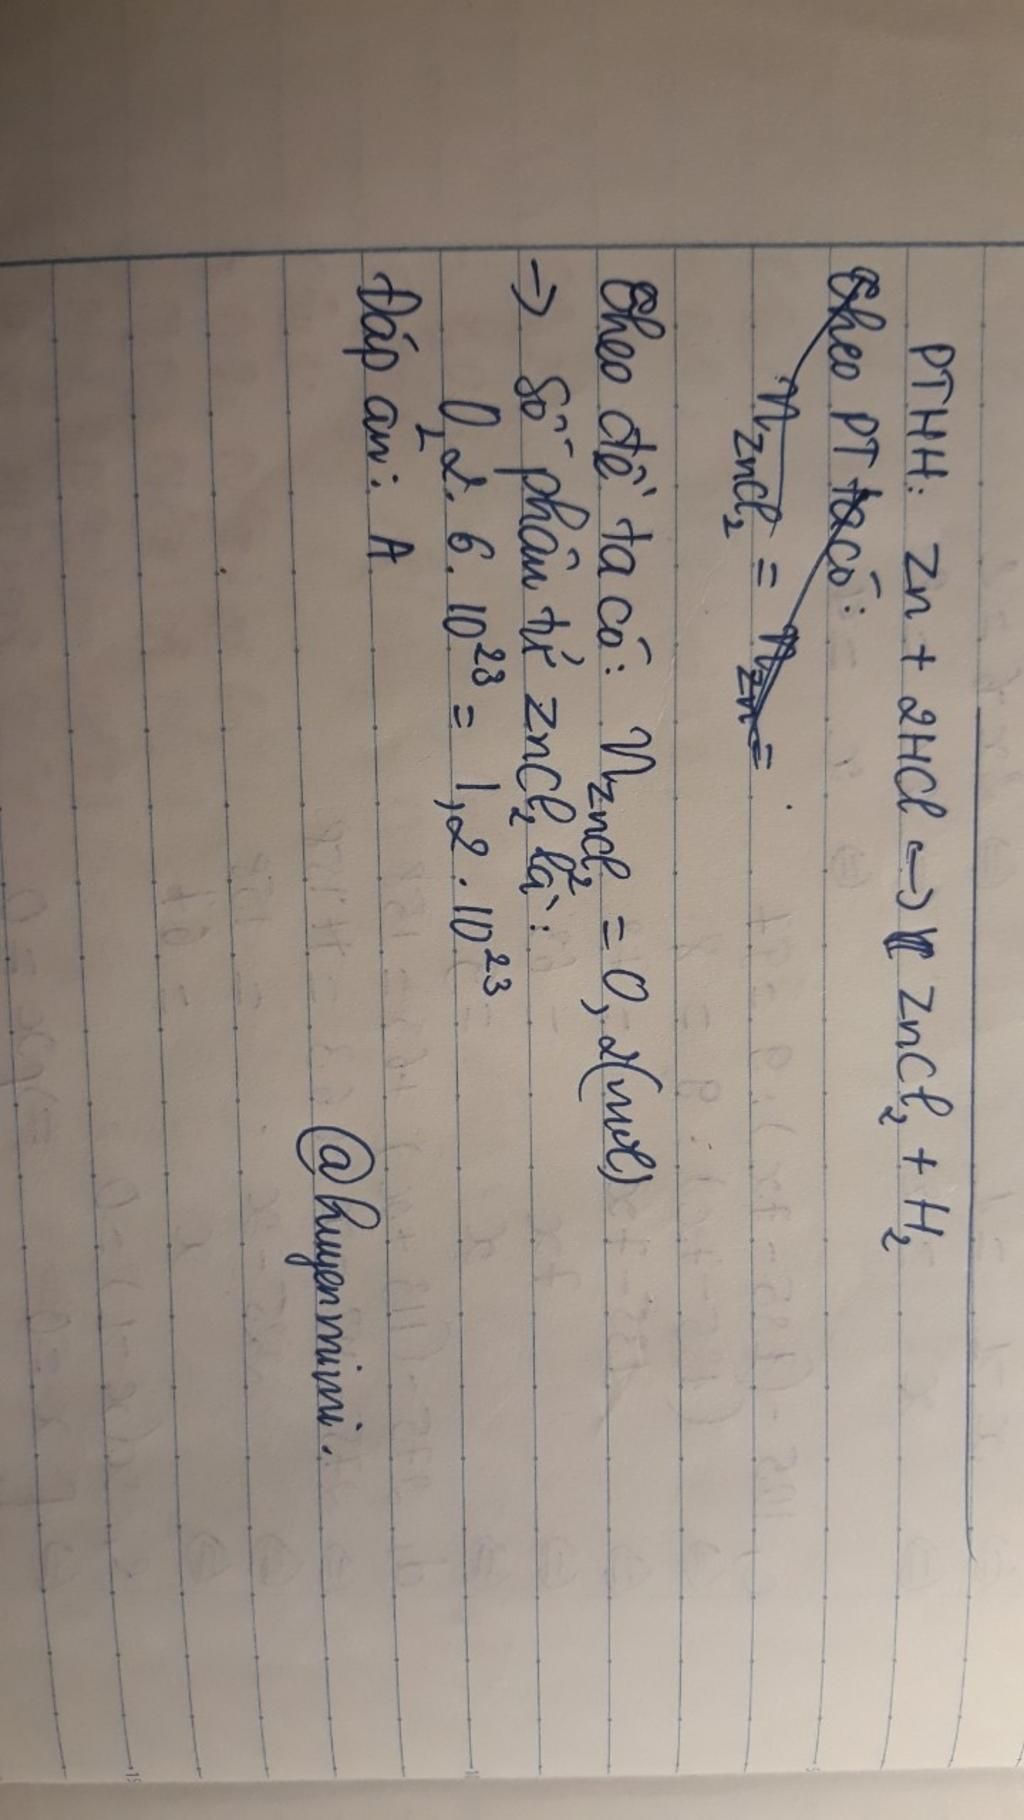 PTHH: Zn + 2HCl → ZnCl₂ + H₂
Theo PT ta có:
n ZnCl₂ = n Zn =
Theo đề ta có: n ZnCl₂ = 0,2 (mol)
→ Số phân tử ZnCl₂ là:
0,2. 6. 10²³ = 1,2 . 10²³
Đáp án: A
@huyenmimi.